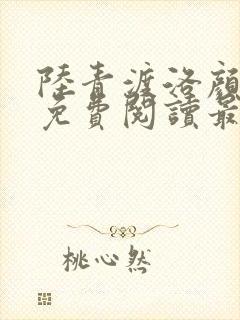 陸青渡洛顏
免費閱讀最
桃心然